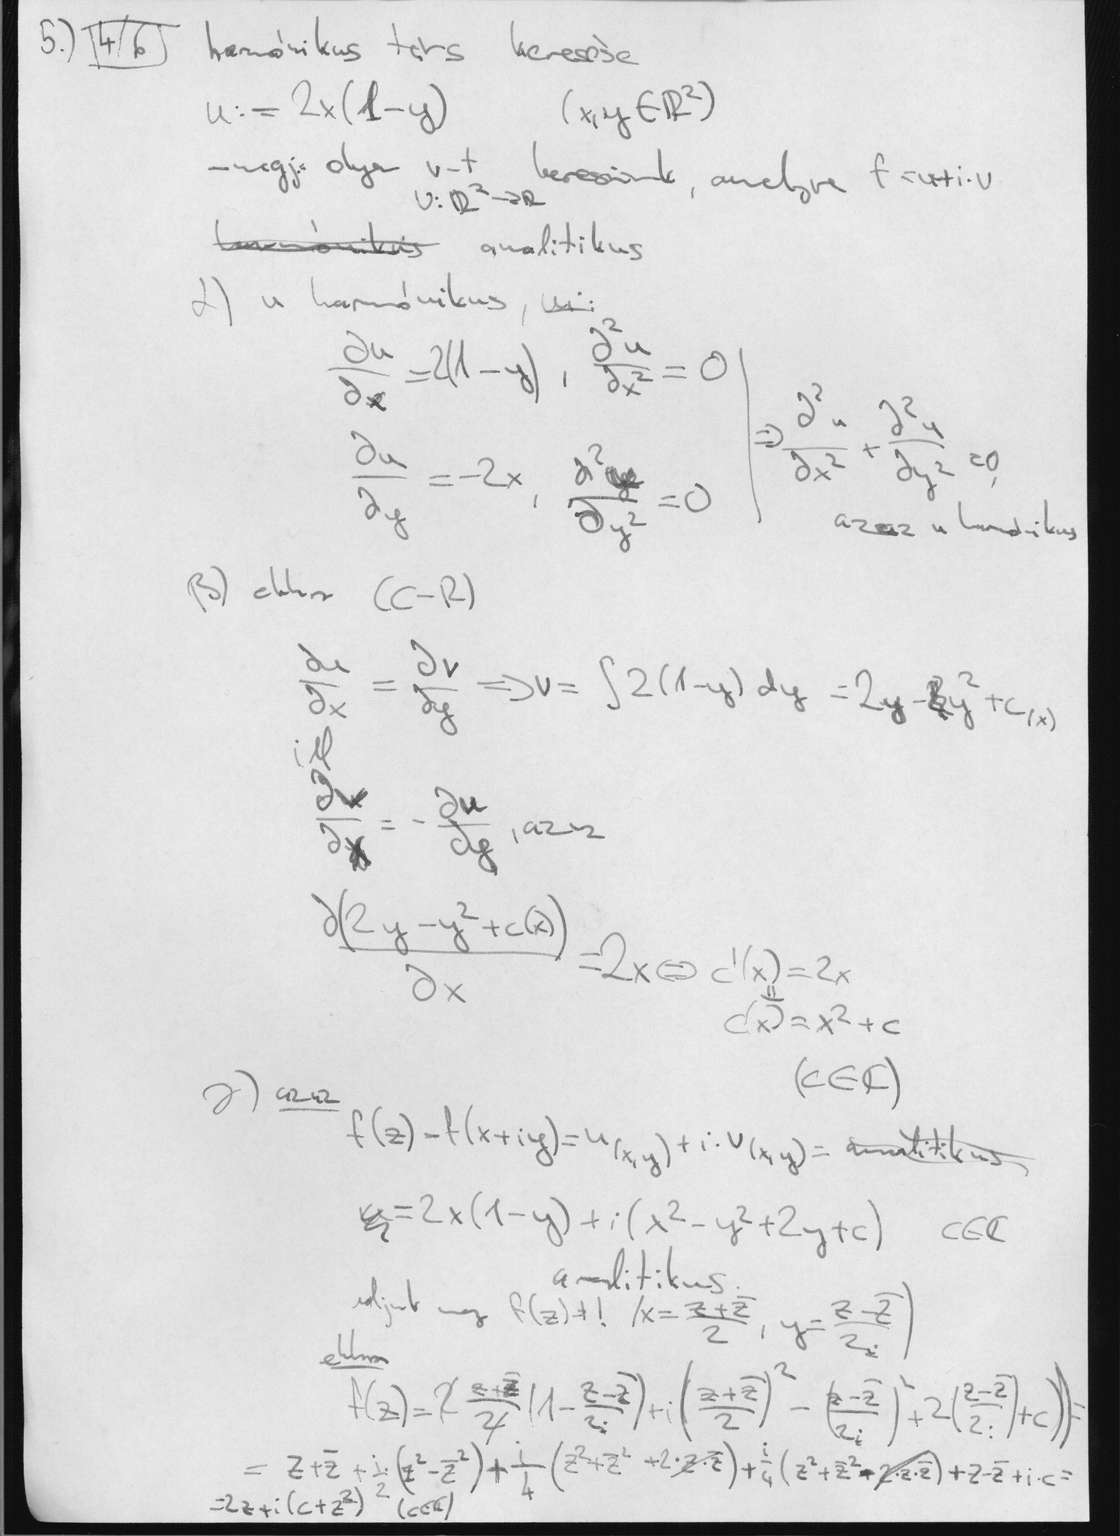 5.) 4/6 harmónikus társ keresése
u := 2x(1-y) (x,y ∈ ℝ²)
- olyan v-t keresünk, amelyre f = u+i·v
v: ℝ² → ℝ
harmónikus analitikus
α) u harmónikus, ui:
∂u/∂x = 2(1-y), ∂²u/∂x² = 0
⇒ ∂²u/∂x² + ∂²u/∂y² = 0,
∂u/∂y = -2x, ∂²u/∂y² = 0
azaz u harmónikus
β) ekkor (C-R)
∂u/∂x = ∂v/∂y ⇒ v = ∫2(1-y) dy = 2y - y² + c(x)
ill
∂v/∂x = -∂u/∂y, azaz
∂(2y - y² + c(x))/∂x = 2x ⇔ c'(x) = 2x
c(x) = x² + c
(c ∈ ℂ)
γ) azaz
f(z) = f(x+iy) = u(x,y) + i·v(x,y) = analitikus
= 2x(1-y) + i(x² - y² + 2y + c) c ∈ ℂ
analitikus.
adjuk meg f(z)-t! (x = (z+z̄)/2, y = (z-z̄)/2i)
ekkor
f(z) = 2 (z+z̄)/2 (1 - (z-z̄)/2i) + i(((z+z̄)/2)² - ((z-z̄)/2i)² + 2((z-z̄)/2i) + c)) =
= z+z̄ + i/2 (z² - z̄²) + i/4 (z² + z̄² + 2·z·z̄) + i/4 (z² + z̄² - 2·z·z̄) + z - z̄ + i·c =
= 2z + i(c + z²) (c ∈ ℂ)